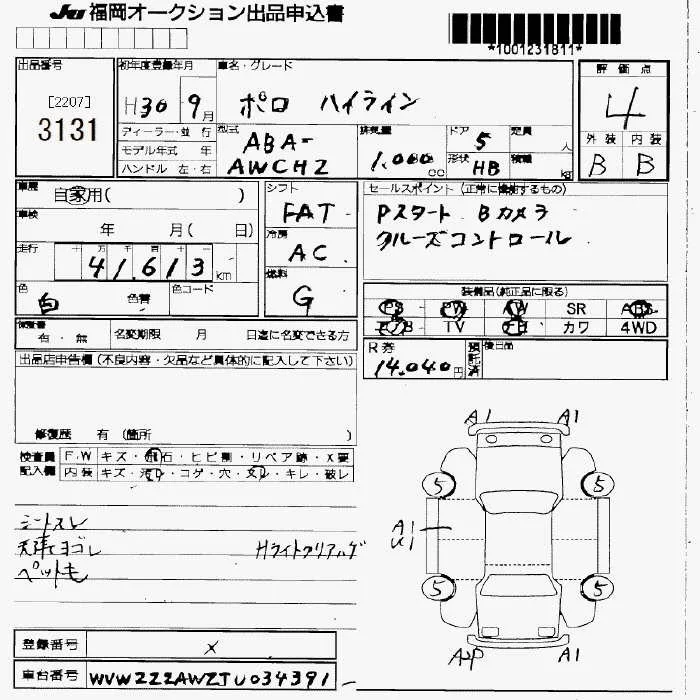 JU 福岡オークション出品申込書
*1001231811*
出品番号
[2207]
3131
初年度登録年月
H30 9月
車名・グレード
ポロ ハイライン
評価点
4
外装 内装
B B
ディーラー・並行
モデル年式 年
ハンドル 左・右
型式
ABA-
AWCHZ
排気量
1,000cc
ドア 5
形状 HB
定員 人
積載 kg
車歴
自家用( )
車検
年 月( 日)
走行
十 万 千 百 十
41,613km
色
白 色替
色コード
シフト
FAT
冷房
AC
燃料
G
セールスポイント (正常に機動するもの)
Pスタート Bカメラ
クルーズコントロール
装備品(純正品に限る)
PS PW AW SR ABS
TV カワ 4WD
有・無 名変期限 月 日迄に名変できる方
R券
14,040円
預託済
後日品
出品店申告欄 (不良内容・欠品など具体的に記入して下さい)
修復歴 有 (箇所 )
検査員 F.W キズ・飛石・ヒビ割・リペア跡・X要
記入欄 内装 キズ・汚れ・コゲ・穴・スレ・キレ・破レ
シートスレ
天張てヨゴレ
ペットも
Hライトクリアハゲ
A1 A1
5 5
A1
U1
5 5
A1
登録番号 X
車台番号 WVWZZZAWZTU034391